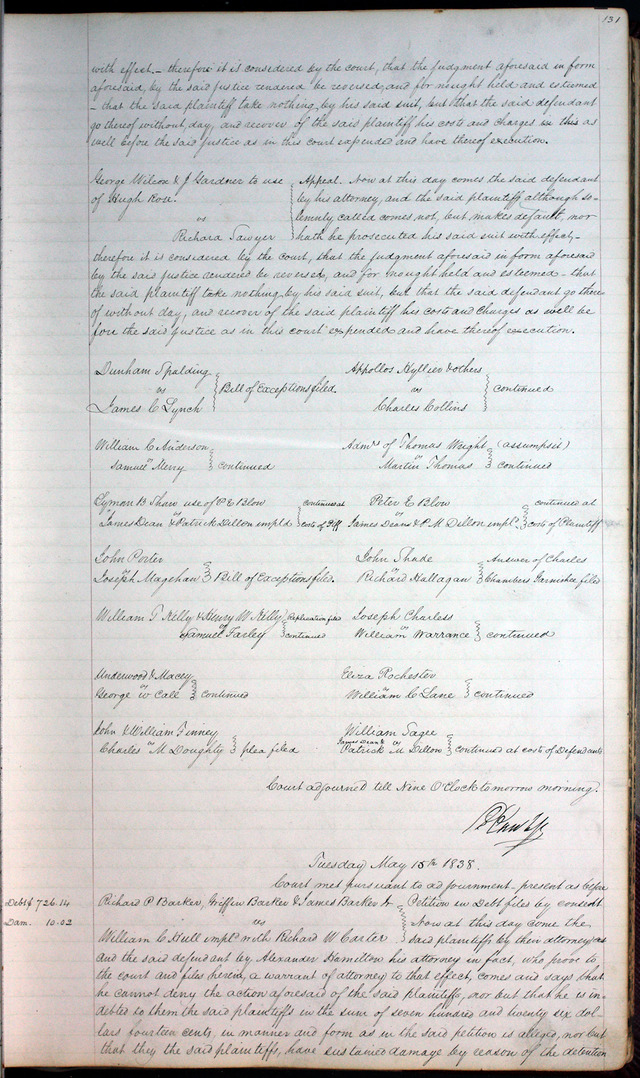 131
with effect. – therefore it is considered by the court, that the judgment aforesaid in form
aforesaid, by the said justice rendered be reversed, and for nought held and esteemed
– that the said plaintiff take nothing by his said suit, but that the said defendant
go thereof without day, and recover of the said plaintiff his costs and charges in this as
well before the said justice as in this court expended and have thereof execution.
George Wilcox & J Gardner to use
of Hugh Rose.
vs
Richard Sawyer
Appeal. Now at this day comes the said defendant
by his attorney, and the said plaintiffs although so-
lemnly called comes not, but makes default, nor
hath he prosecuted his said suit with effect, –
therefore it is considered by the court, that the judgment aforesaid in form aforesaid
by the said justice rendered be reversed, and for nought held and esteemed – that
the said plaintiff take nothing by his said suit, but that the said defendant go there
of without day, and recover of the said plaintiff his costs and charges as well be
fore the said justice as in this court expended and have thereof execution.
Dunham Spalding
vs
James C Lynch
Bill of Exceptions filed.
Appollos Hyllier & others
vs
Charles Collins
continued
William C Anderson
vs
Samuel Merry
continued
Admrs of Thomas Wright (assumpsit)
vs
Martin Thomas
continued
Lyman B Shaw use of P E Blow
vs
James Dean & Patrick Dillon impld
continued at
costs of Plff
Peter E Blow
vs
James Deans & P. M Dillon impld.
continued at
costs of Plaintiff
John Porter
vs
Joseph Magehan
Bill of Exceptions filed.
John Shade
vs
Richard Hallagan
Answer of Charles
Chambers Garnishee filed
William T Kelly & Henry W. Kelly
vs
Samuel Farley
Replication filed
continued
Joseph Charless
vs
William Warrance
continued
Underwood & Macey
vs
George W Call
continued
Eliza Rochester
vs
William C Lane
continued
John & William Finney
vs
Charles M Doughty
plea filed
William Sagee
vs
James Dean &
Patrick M Dillon
continued at costs of Defendants
Court adjourned till Nine O'Clock tomorrow morning.
Tuesday May 15th 1838.
Court met pursuant to adjournment – present as before
Debt $ 726.14
Dam. 10.02
Richard P Barker, Griffin Barker & James Barker Jr
vs
William C Hull impld with Richard W Carter
Petition in Debt filed by consent
Now at this day come the
said plaintiffs by their attorney as
and the said defendant by Alexander Hamilton his attorney in fact, who prove to
the court and files herein, a warrant of attorney to that effect, comes and says that
he cannot deny the action aforesaid of the said plaintiffs, nor but that he is in-
debted to them the said plaintiffs in the sum of seven hundred and twenty six dol-
lars fourteen cents, in manner and form as in the said petition is alleged, nor but
that they the said plaintiffs, have sustained damage by reason of the detention